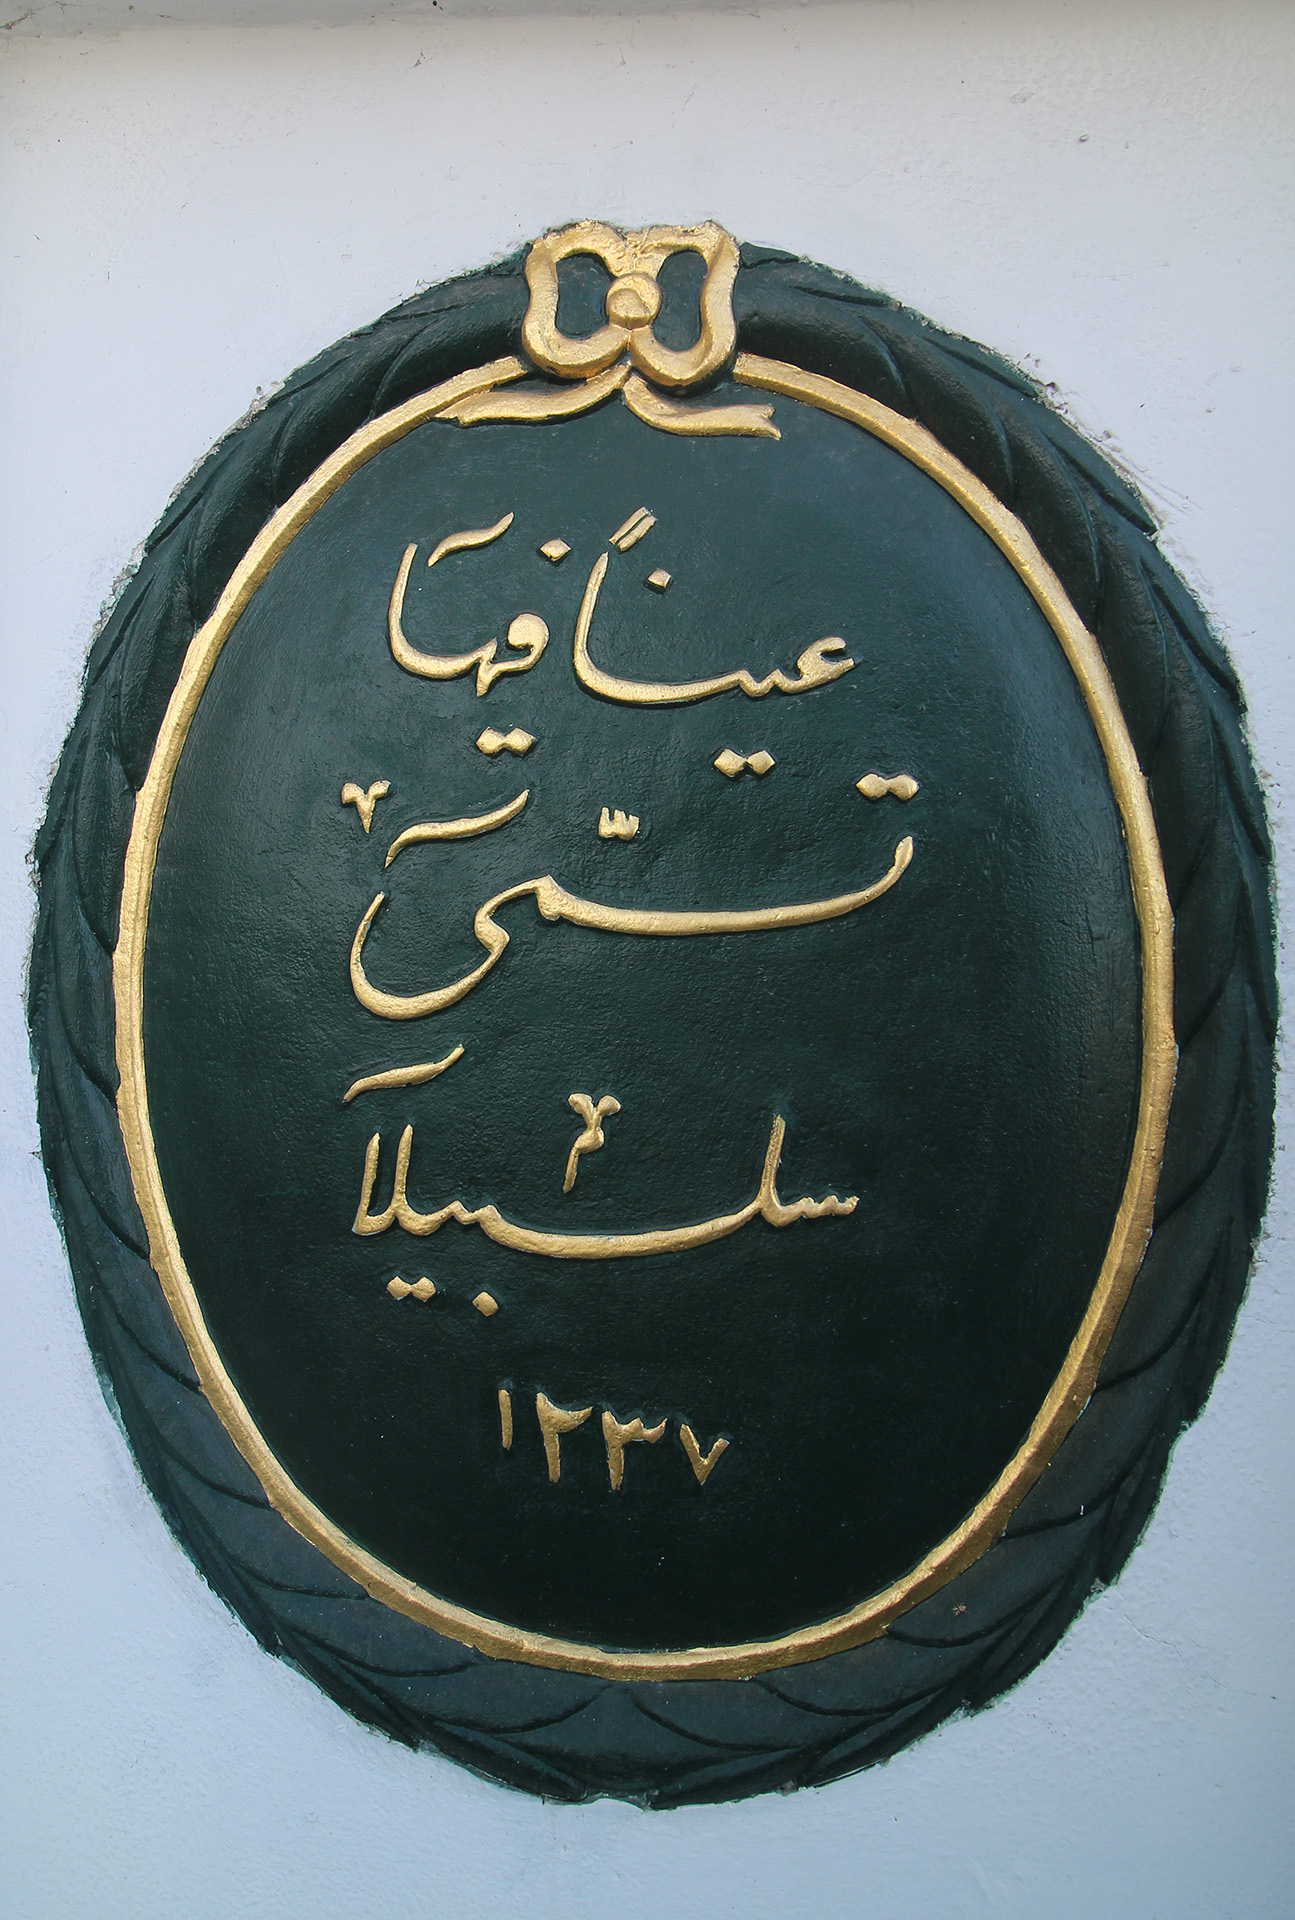 عيناً فيها
تسمّى
سلسبيلاً
١٢٣٧